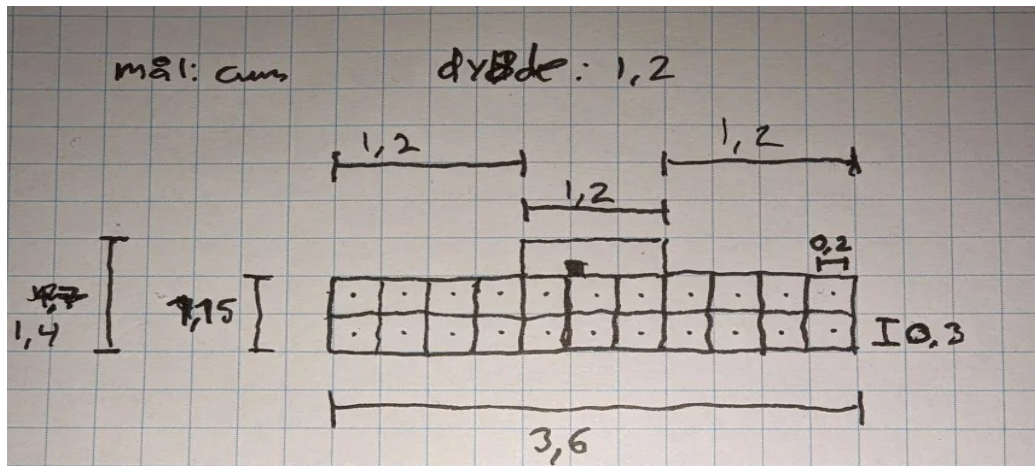 mål: cm
dybde: 1,2
1,2
1,2
1,2
0,2
1,15
1,4
0,3
3,6